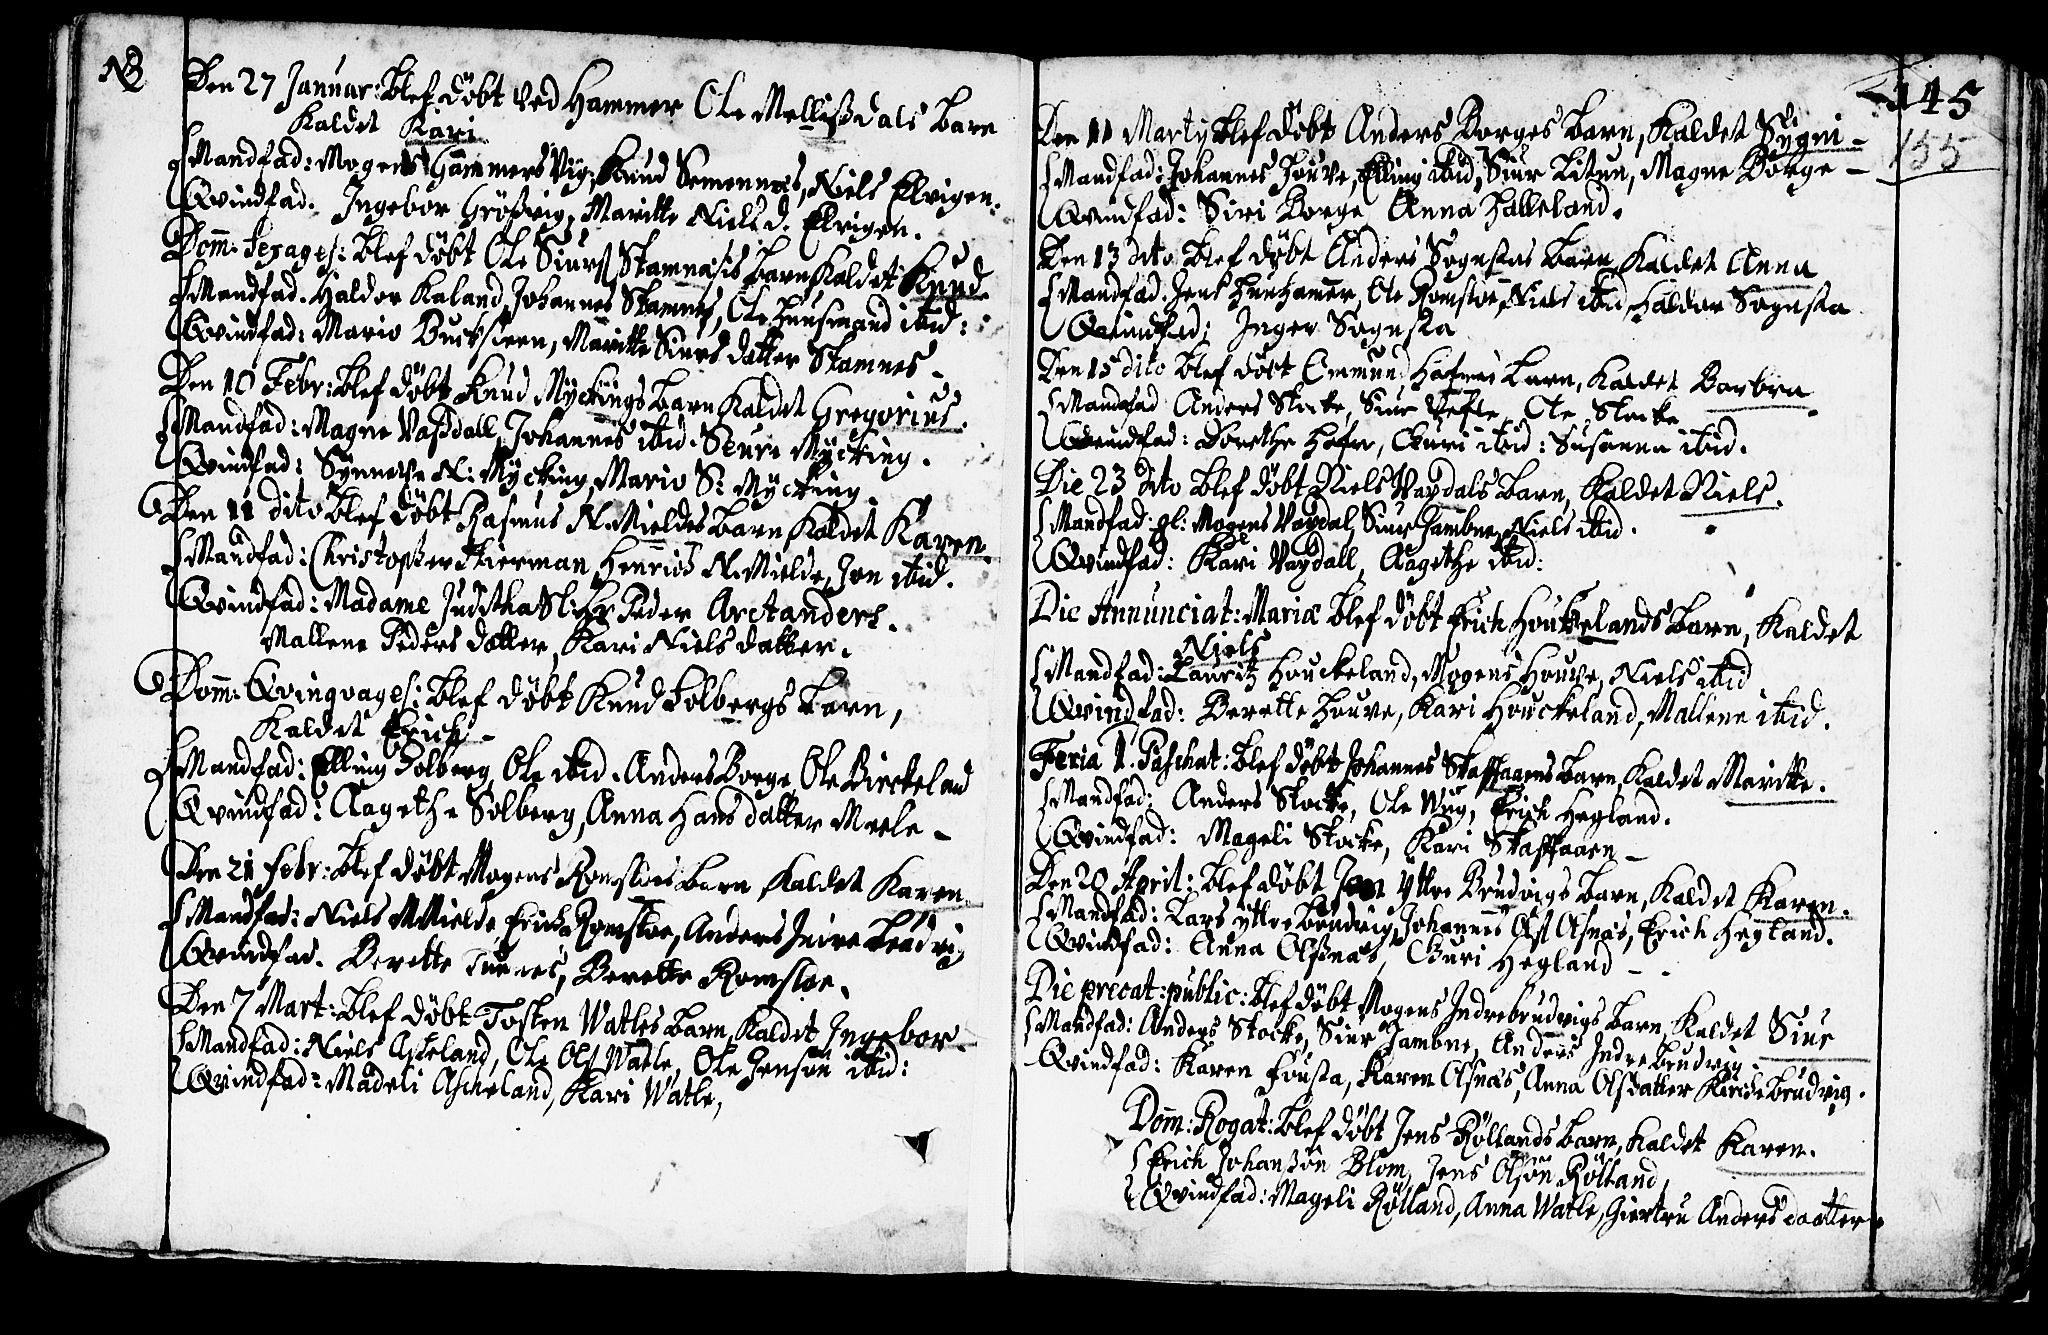 NB
Den 27 Januar: blef døbt ved Hammer Ole Mellisdals barn
kaldet Kari
Mandfad: Mogens Hammersvig, Knud Semennes, Niels Elvigen.
Qvindfad. Ingebor Grøsvig, Maritte Nielsd. Elvigen.
Dom̄. Sexages: blef døbt Ole Siurs Stamnesis barn kaldet Knud.
Mandfad. Haldor Kaland, Johannes Stamnes, Ole Huusmand ibid:
Qvindfad: Mario Bucksteen, Maritte Siursdatter Stamnes
Den 10 Febr: blef døbt Knud Myckings barn kaldet Gregorius.
Mandfad: Magne Vasdall, Johannes ibid. Siur Mycking.
Qvindfad: Synneve N: Mycking, Mario S: Mycking.
Den 11 dito blef døbt Rasmus N. Mieldes barn kaldet Karen.
Mandfad: Christopher Stierman, Henrich N. Mielde, Jon ibid.
Qvindfad: Madame Juditha Sl. Hr Peder Arctanders.
Mallene Pedersdatter, Kari Nielsdatter.
Dom̄. Qvinqvages: blef døbt Knud Solbergs barn,
kaldet Erich
Mandfad: Elling Solberg, Ole ibid. Anders Borge, Ole Birckeland
Qvindfad: Aagethe Solberg, Anna Hansdatter Meele
Den 21 Febr: blef døbt Mogens Romsloes barn kaldet Karen.
Mandfad: Niels N. Mielde, Erich Romsloe, Anders Indre Brudvig
Qvindfad. Berette Tunes, Berette Romsloe.
Den 7 Mart: blef døbt Tosten Watles barn, kaldet Ingebor.
Mandfad: Niels Askeland, Ole Ols Watle, Ole Jensøn ibid:
Qvindfad: Madeli Ascheland, Kari Watle,
145
155
Den 11 Martÿ blef døbt Anders Borges barn, kaldet Sygni
Mandfad: Johannes Houve, Elling ibid, Siur Litun, Magne Borge
Qvindfad: Siri Borge, Anna Halleland.
Den 13 dito blef døbt Anders Sognstas barn, kaldet Anna
Mandfad. Jens Huushamer, Ole Romsloe, Niels ibid, Haldor Sognsta
Qvindfad: Inger Sognsta
Den 15 dito blef døbt Ommund Hofnes barn, kaldet Barbra
Mandfad Anders Stocke, Siur Tefte, Ole Stocke
Qvindfad: Dorethe Hofn, Guri ibid: Susanna ibid.
Die 23 dito blef døbt Niels Vaxdals barn, kaldet Niels.
Mandfad: gl: Mogens Vaxdal, Siur Jambne, Niels ibid.
Qvindfad: Kari Vaxdall, Aagethe ibid:
Die Annunciat: Mariæ blef døbt Erich Houkelands barn, kaldet
Niels
Mandfad: Lauritz Houckeland, Mogens Houve, Niels ibid
Qvindfad: Berette Houve, Kari Houckeland, Mallene ibid.
Feria 1. Paschat: blef døbt Johannes Skaffaaens barn, kaldet Maritte.
Mandfad: Anders Stocke, Ole Wug, Erich Hegland.
Qvindfad: Mageli Stocke, Kari Skaffaaen
Den 20 April: blef døbt Jon Yttre Brudvigs barn, kaldet Karen.
Mandfad: Lars yttre Brudvig, Johannes Ols Olsnæs, Erich Hegland.
Qvindfad: Anna Olsnæs, Guri Hegland
Die precat: public: blef døbt Mogens Indrebrudvigs barn, kaldet Siur
Mandfad: Anders Stocke, Siur Jambne, Anders Indre Brudvig
Qvindfad: Karen Fousta, Karen Olsnæs, Anna Olsdatter Brudvig.
Dom̄: Rogat: blef døbt Jens Røllands barn, kaldet Karen.
Erich Johansøn Blom, Jens Olsøn Rølland,
Qvindfad: Mageli Rølland, Anna Watle, Giertru Andersdaatter